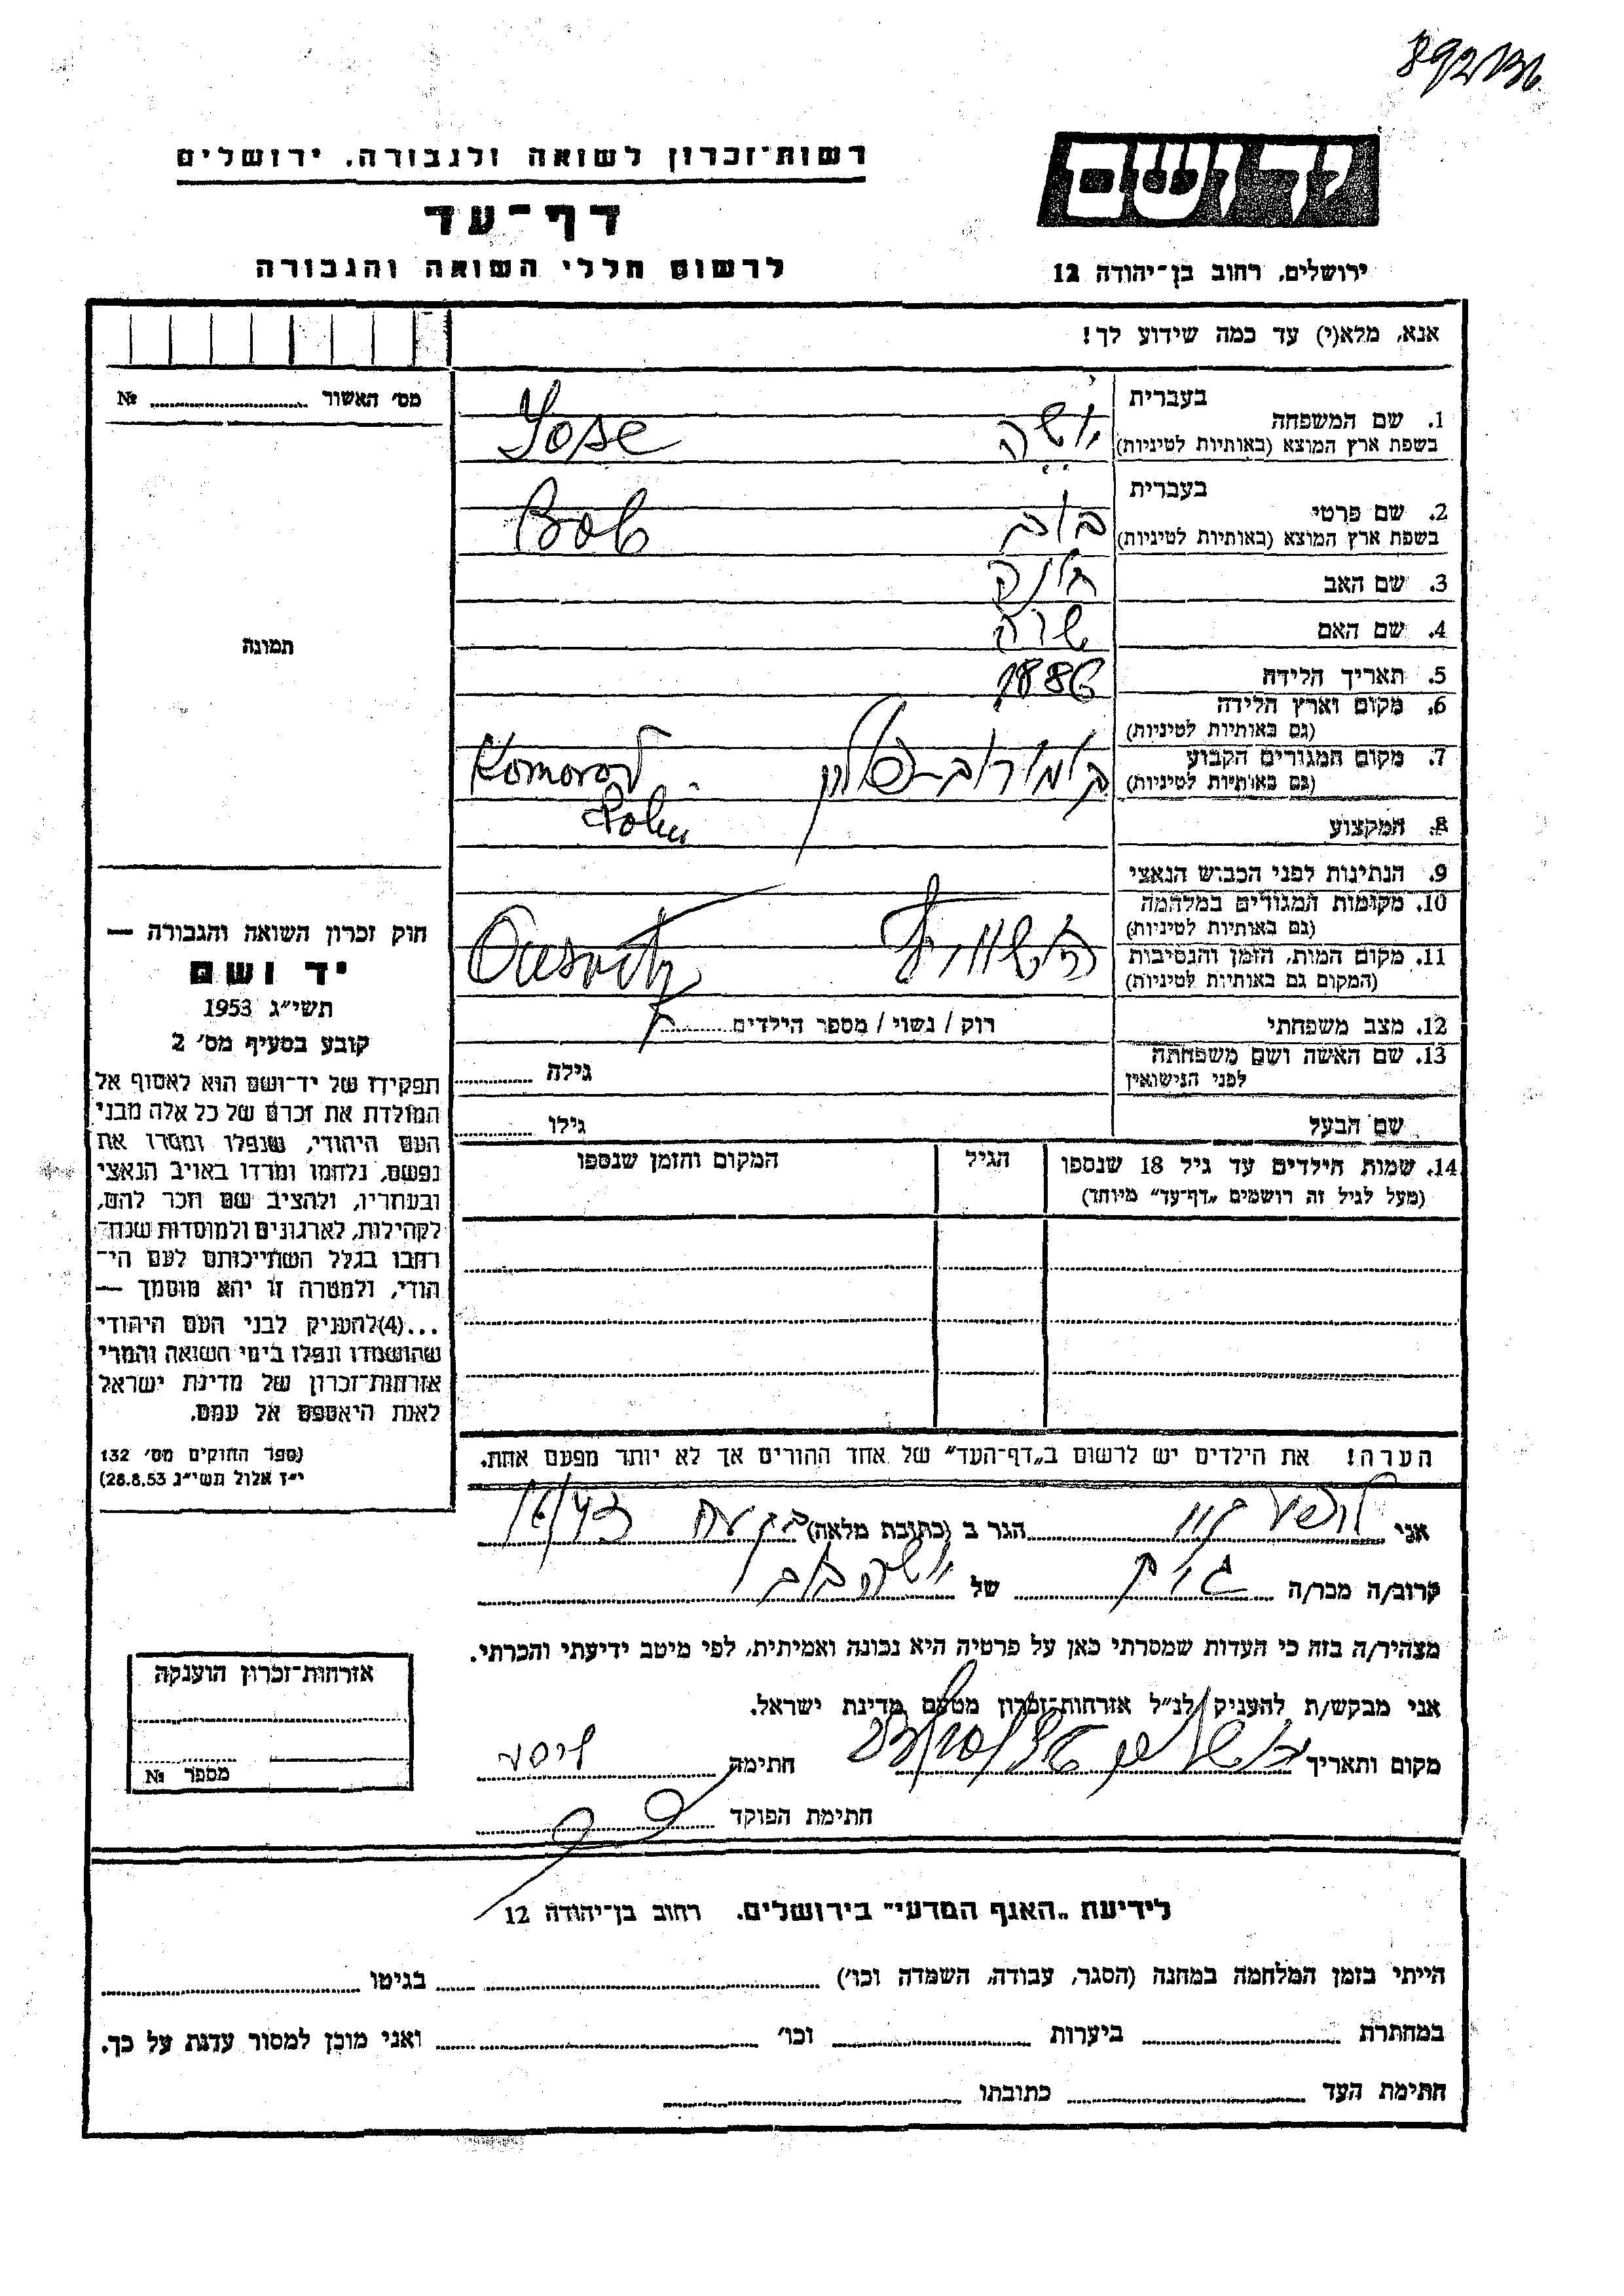 רשות־זכרון לשואה ולגבורה, ירושלים
דף־עד
לרשום חללי השואה והגבורה
יד ושם
ירושלים, רחוב בן־יהודה 12
אנא, מלא(י) עד כמה שידוע לך!
מס׳ האשור № 
תמונה
1. שם המשפחה
בעברית
בשפת ארץ המוצא (באותיות לטיניות)
Yose
2. שם פרטי
בעברית
בשפת ארץ המוצא (באותיות לטיניות)
בוב Bob
3. שם האב
4. שם האם שרה
5. תאריך הלידה 1886
6. מקום וארץ הלידה
(גם באותיות לטיניות)
7. מקום המגורים הקבוע
(גם באותיות לטיניות)
קומורוב-פולין Komorov
Polin
8. המקצוע
9. הנתינות לפני הכבוש הנאצי
10. מקומות המגורים במלחמה
(גם באותיות לטיניות)
11. מקום המות, הזמן והנסיבות
(המקום גם באותיות לטיניות)
12. מצב משפחתי רוק / נשוי / מספר הילדים
13. שם האשה ושם משפחתה
לפני הנישואין
גילה
שם הבעל גילו
14. שמות הילדים עד גיל 18 שנספו הגיל המקום והזמן שנספו
(מעל לגיל זה רושמים „דף־עד” מיוחד)
הערה! את הילדים יש לרשום ב„דף־העד” של אחד ההורים אך לא יותר מפעם אחת.
חוק זכרון השואה והגבורה —
יד ושם
תשי״ג 1953
קובע בסעיף מס׳ 2
תפקידו של יד־ושם הוא לאסוף אל
המולדת את זכרם של כל אלה מבני
העם היהודי, שנפלו ומסרו את
נפשם, נלחמו ומרדו באויב הנאצי
ובעוזריו, ולהציב שם וזכר להם,
לקהילות, לארגונים ולמוסדות שנח־
רבו בגלל השתייכותם לעם הי־
הודי, ולמטרה זו יהא מוסמך —
...(4)להעניק לבני העם היהודי
שהושמדו ונפלו בימי השואה והמרי
אזרחות־זכרון של מדינת ישראל
לאות היאספם אל עמם.
(ספר החוקים מס׳ 132
י״ז אלול תשי״ג 28.8.53)
אני הגר ב (כתובת מלאה)
קרוב/ה מכר/ה של
מצהיר/ה בזה כי העדות שמסרתי כאן על פרטיה היא נכונה ואמיתית, לפי מיטב ידיעתי והכרתי.
אני מבקש/ת להעניק לנ״ל אזרחות־זכרון מטעם מדינת ישראל.
מקום ותאריך חתימה
חתימת הפוקד
אזרחות־זכרון הוענקה
מספר №
לידיעת „האגף המדעי” בירושלים, רחוב בן־יהודה 12
הייתי בזמן המלחמה במחנה (הסגר, עבודה, השמדה וכו׳) בגיטו
במחתרת ביערות וכו׳ ואני מוכן למסור עדות על כך.
חתימת העד כתובתו